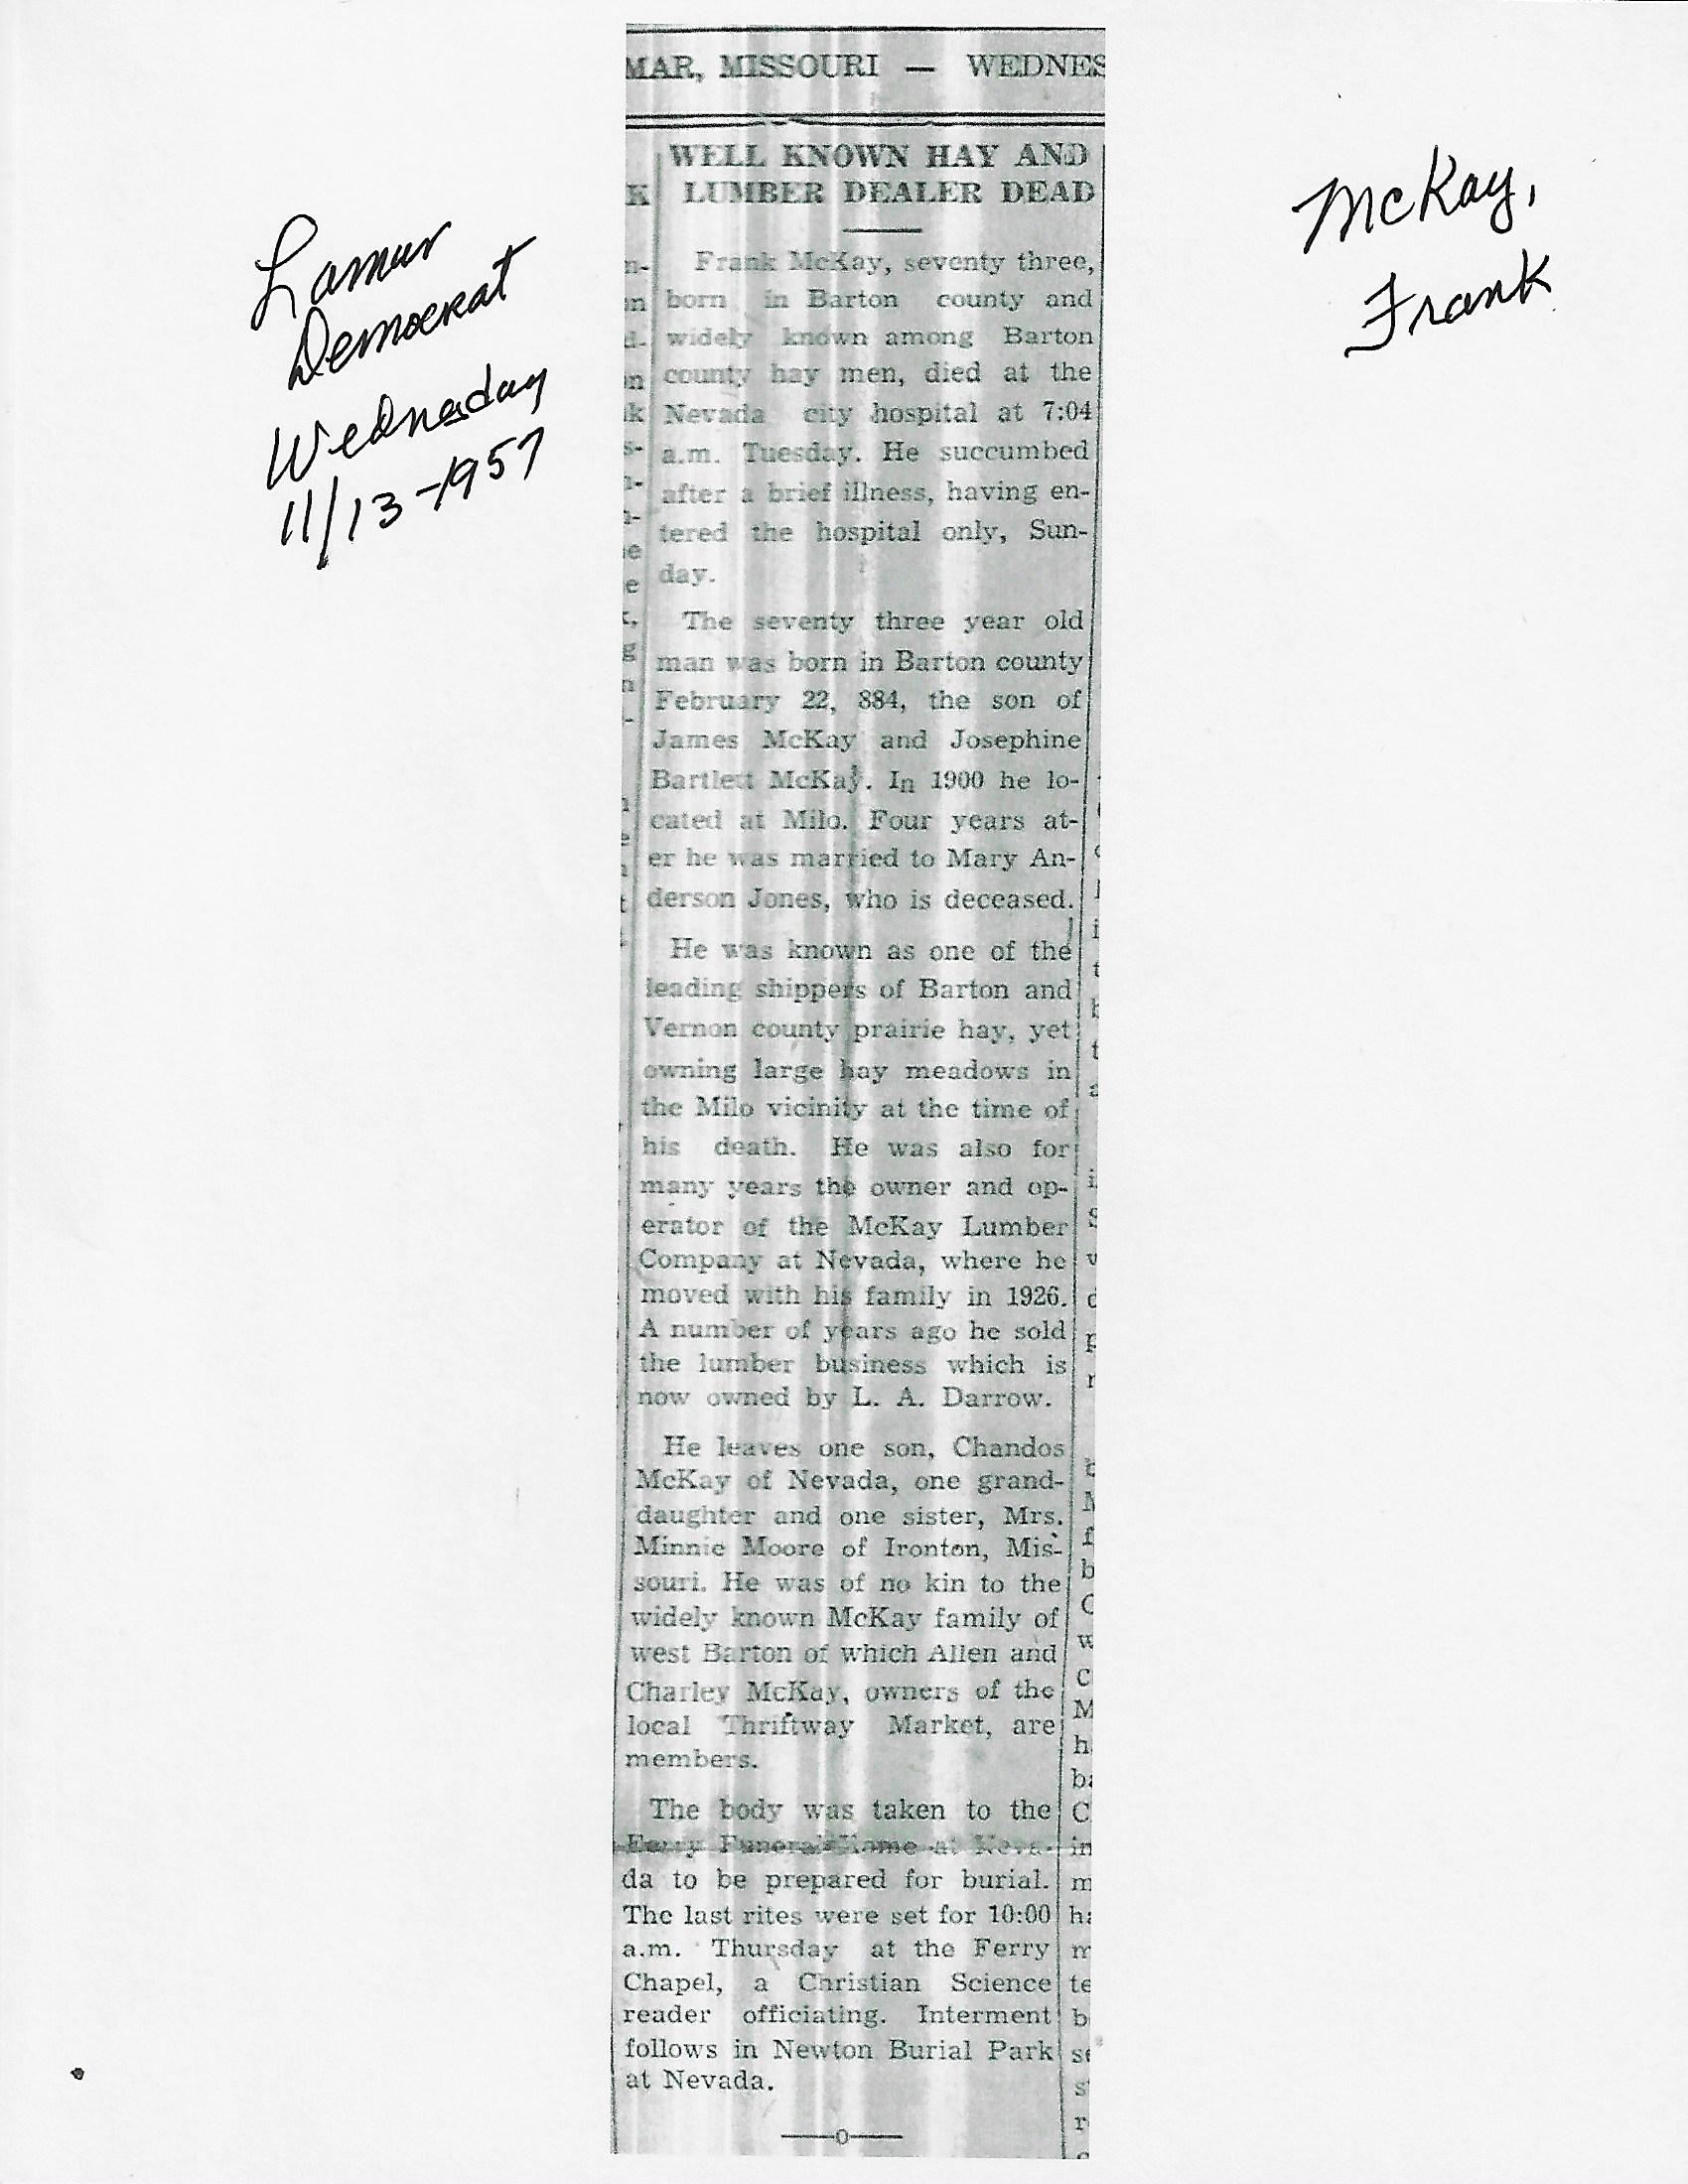 Lamar
Democrat
Wednesday
11/13-1957
McKay,
Frank
MAR, MISSOURI — WEDNES
WELL KNOWN HAY AND
LUMBER DEALER DEAD
Frank McKay, seventy three,
born in Barton county and
widely known among Barton
county hay men, died at the
Nevada city hospital at 7:04
a.m. Tuesday. He succumbed
after a brief illness, having en-
tered the hospital only, Sun-
day.
The seventy three year old
man was born in Barton county
February 22, 884, the son of
James McKay and Josephine
Bartlett McKay. In 1900 he lo-
cated at Milo. Four years at-
er he was married to Mary An-
derson Jones, who is deceased.
He was known as one of the
leading shippers of Barton and
Vernon county prairie hay, yet
owning large hay meadows in
the Milo vicinity at the time of
his death. He was also for
many years the owner and op-
erator of the McKay Lumber
Company at Nevada, where he
moved with his family in 1926.
A number of years ago he sold
the lumber business which is
now owned by L. A. Darrow.
He leaves one son, Chandos
McKay of Nevada, one grand-
daughter and one sister, Mrs.
Minnie Moore of Ironton, Mis-
souri. He was of no kin to the
widely known McKay family of
west Barton of which Allen and
Charley McKay, owners of the
local Thriftway Market, are
members.
The body was taken to the
Funeral Home at Neva-
da to be prepared for burial.
The last rites were set for 10:00
a.m. Thursday at the Ferry
Chapel, a Christian Science
reader officiating. Interment
follows in Newton Burial Park
at Nevada.
—o—